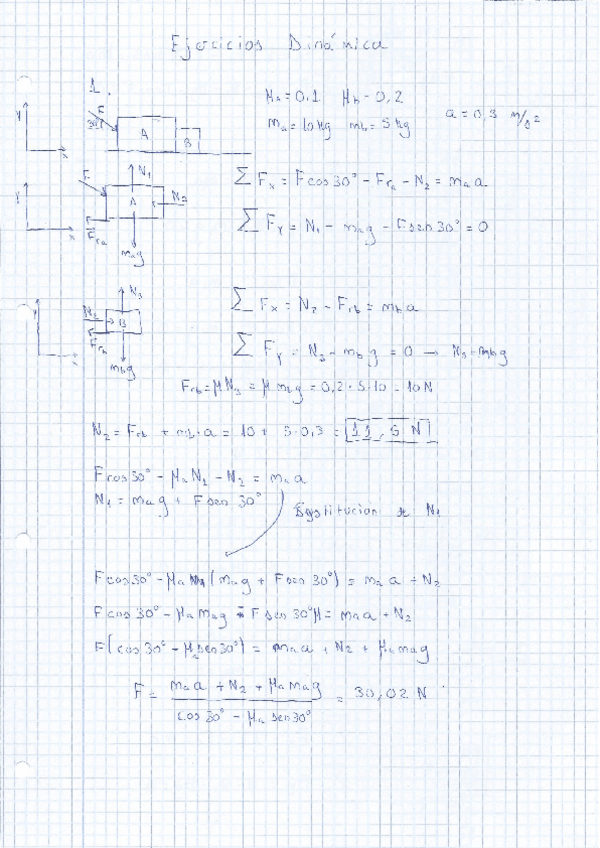 Ejercicios Dinámica
1.
μa = 0,1 μb = 0,2
ma = 10 kg mb = 5 kg a = 0,3 m/s²
Y
x
F
30°
A
B
ΣFx = Fcos30° - Fra - N2 = ma a
ΣFy = N1 - mag - Fsen30° = 0
Y
x
F
N1
A
N2
Fra
mag
ΣFx = N2 - Frb = mb a
ΣFy = N3 - mbg = 0 → N3 = mbg
Y
x
N3
N2
B
Frb
mbg
Frb = μN3 = μmbg = 0,2 · 5 · 10 = 10N
N2 = Frb + mb·a = 10 + 5·0,3 = 11,5 N
Fcos30° - μaN1 - N2 = ma a
N1 = mag + Fsen 30°
Sustitucion N1
Fcos30° - μa (mag + Fsen30°) = ma a + N2
Fcos 30° - μa mag - Fsen30°μ = ma a + N2
F(cos30° - μa sen30°) = ma a + N2 + μa mag
F = ma a + N2 + μa mag / cos 30° - μa sen 30° = 30,02 N